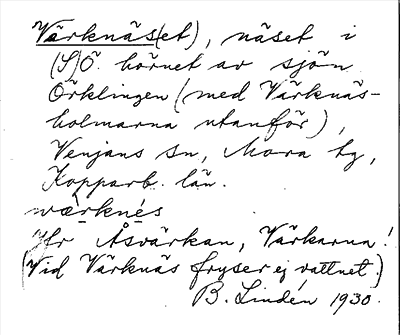 Värknäs(et), näset i
(S)Ö. hörnet av sjön
Örklingen (med Värknäs-
holmarna utanför),
Venjans sn, Mora tg,
Kopparb. län.
wærknés
Jfr Åsvärkan, Värkarna!
(Vid Värknäs fryser ej vattnet.)
B. Lindén 1930.